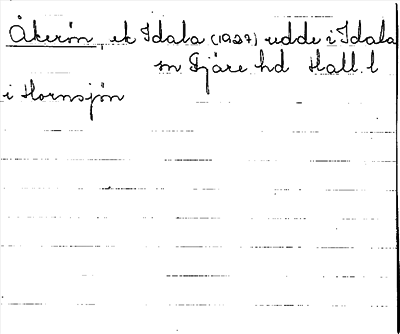 Åkerön, ek Idala (1927) udde i Idala
sn Fjäre hd Hall. l
i Hornsjön